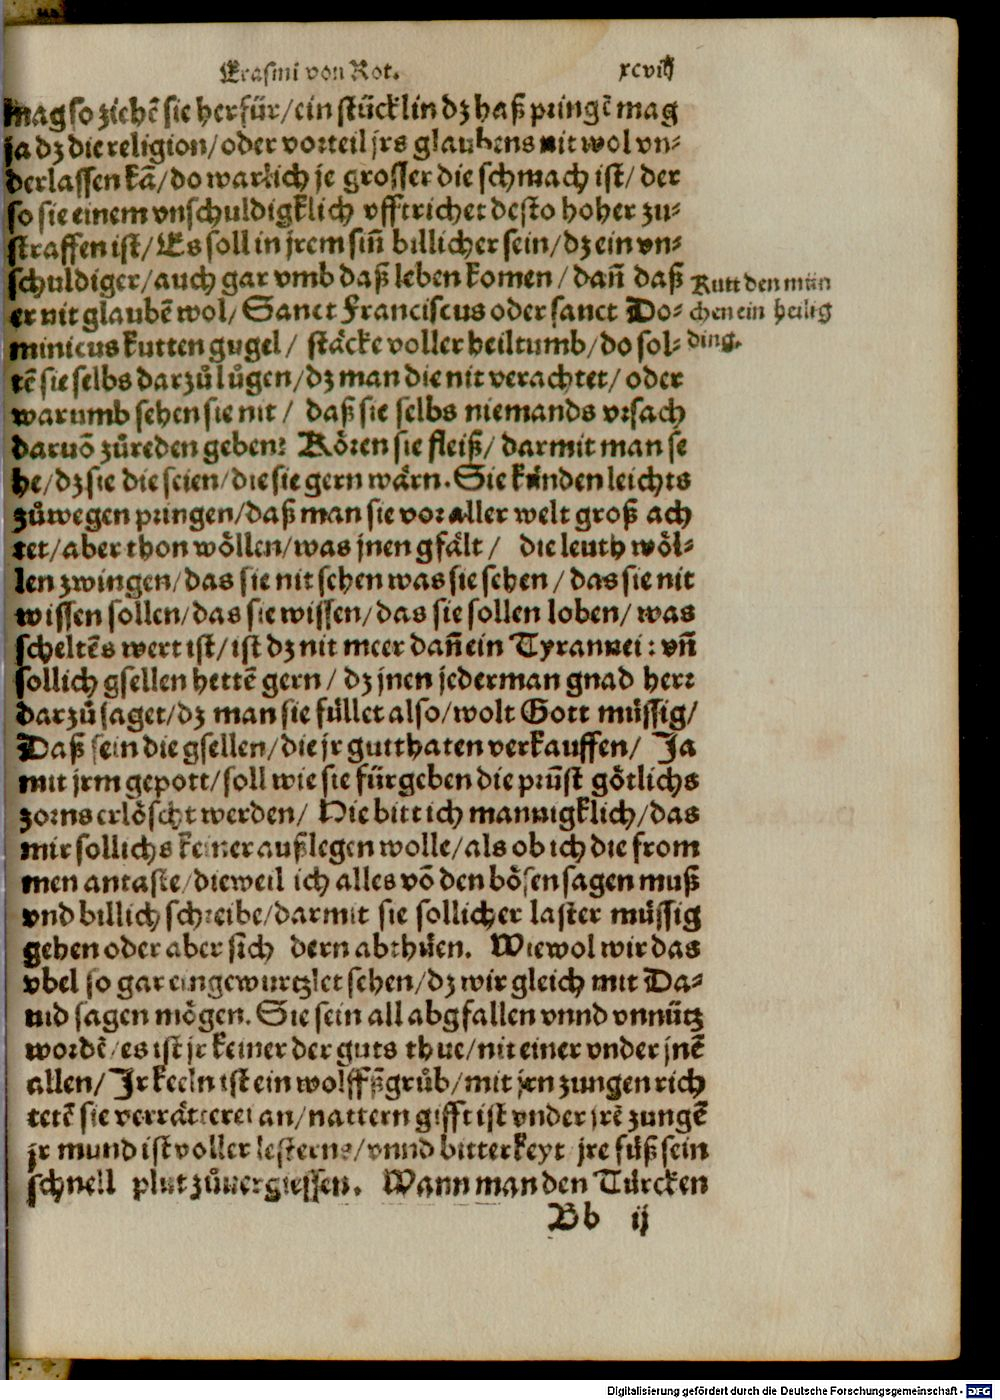 Erasmi von Rot. xcviij
mag so ziehẽ sie herfür/ein stücklin dz haß pringẽ mag
ja dz die religion/oder vorteil jrs glaubens nit wol vn⸗
derlassen kã/do warlich je grosser die schmach ist/ der
so sie einem vnschuldigklich vfftrichet desto hoher zu⸗
straffen ist/Es soll in jrem siñ billicher sein/dz ein vn⸗
schuldiger/auch gar vmb daß leben komen/dañ daß
er nit glaubẽ wol/Sanct Franciscus oder sanct Do⸗
minicus kutten gugel/ stäcke voller heiltumb/do sol⸗
tẽ sie selbs darzů lůgen/dz man die nit verachtet/oder
warumb sehen sie nit/ daß sie selbs niemands vrsach
daruõ zůreden geben: Kören sie fleiß/darmit man sẽ
he/dz sie die seien/die sie gern wärn. Sie künden leichts
zůwegen pringen/daß man sie vor aller welt groß ach
tet/aber thon wöllen/was jnen gfält/ die leuth wöl⸗
len zwingen/das sie nit sehen was sie sehen/das sie nit
wissen sollen/das sie wissen/das sie sollen loben/was
scheltẽs wert ist/ist dz nit meer dañ ein Tyrannei: vñ
sollich gsellen hettẽ gern/dz jnen jederman gnad herr
darzů saget/dz man sie füllet also/wolt Gott müssig/
Daß sein die gsellen/die jr gutthaten verkauffen/ Ja
mit jrm gepott/soll wie sie fürgeben die průst götlichs
zorns erlöscht werden/ Hie bitt ich mannigklich/das
mir sollichs keiner außlegen wolle/als ob ich die from
men antaste/dieweil ich alles võ den bösen sagen muß
vnd billich schreibe/darmit sie sollicher laster müssig
gehen oder aber sich dern abthüen. Wiewol wir das
vbel so gar eingewurtzlet sehen/dz wir gleich mit Da⸗
uid sagen mögen. Sie sein all abgfallen vnnd vnnütz
wordẽ/es ist jr keiner der guts thue/nit einer vnder jnẽ
allen/Jr keeln ist ein wolffßgrůb/mit jrn zungen rich
tetẽ sie verrätterei an/nattern gifft ist vnder jrẽ zungẽ
jr mund ist voller lesterns/vnnd bitterkeyt jre füß sein
schnell plut zůuergiessen. Wann man den Türcken
Bb ij
Kutt den mün
chen ein heilig
ding.
Digitalisierung gefördert durch die Deutsche Forschungsgemeinschaft - DFG